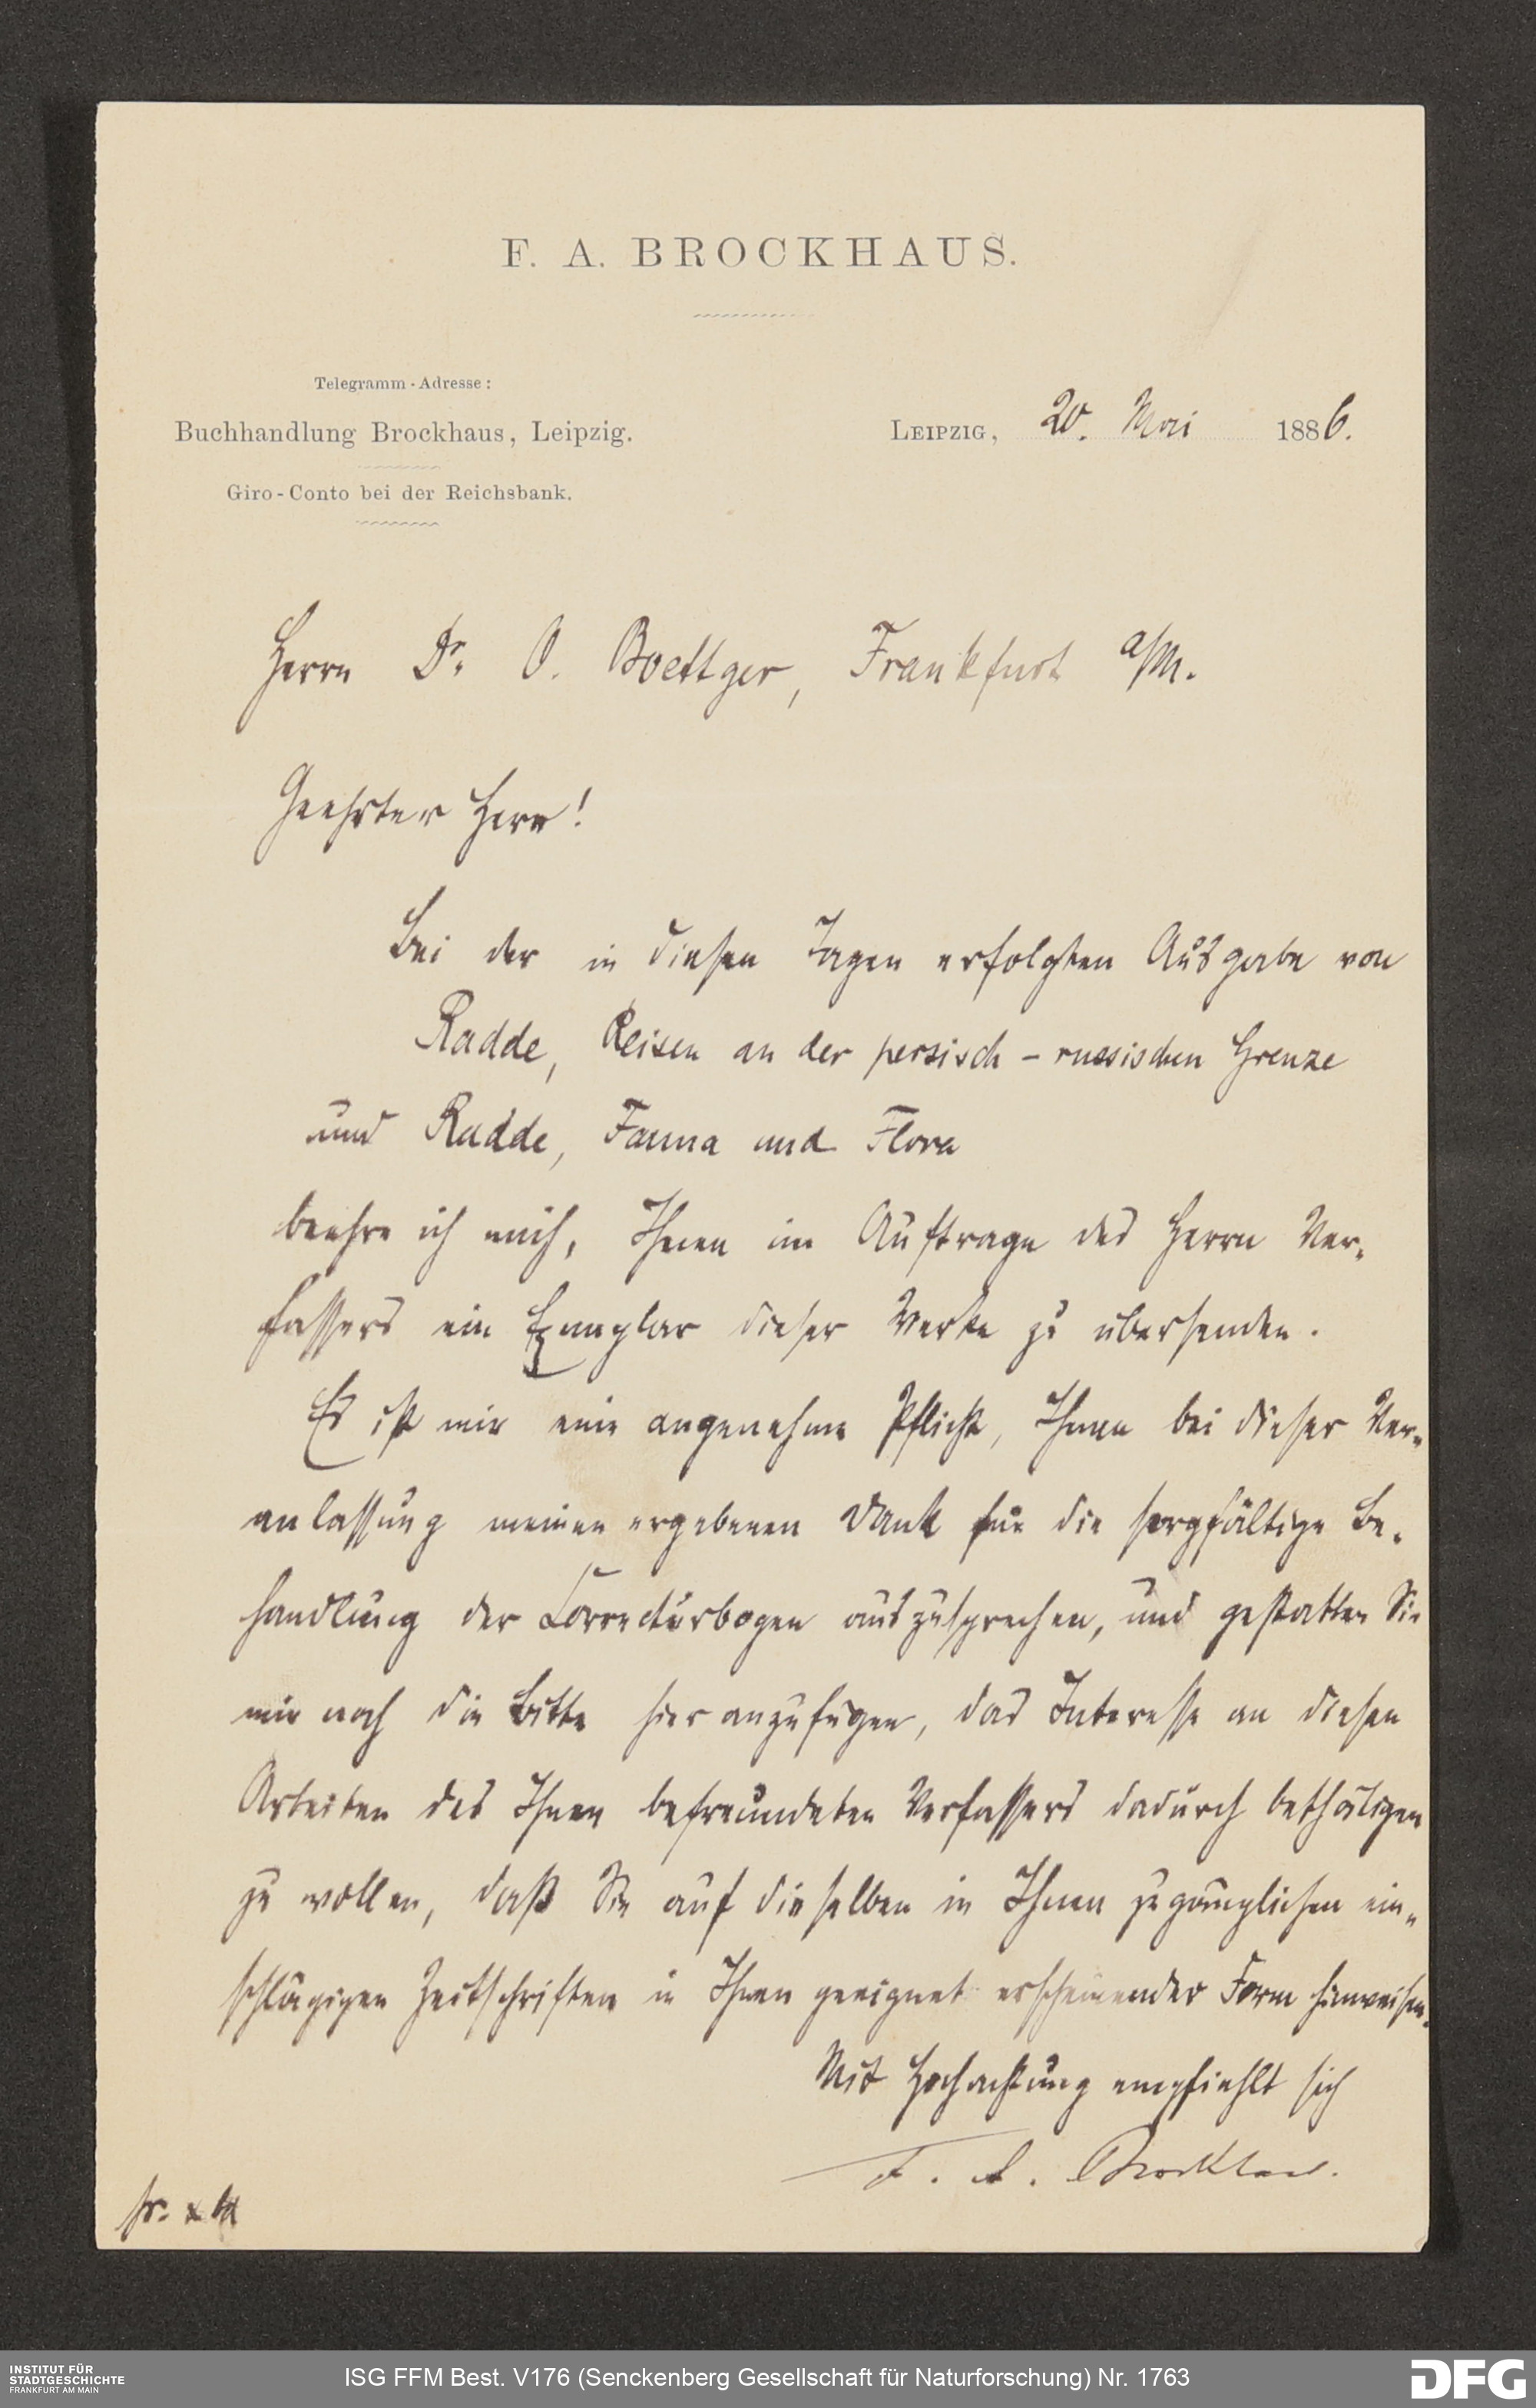 F. A. BROCKHAUS.
Telegramm-Adresse:
Buchhandlung Brockhaus, Leipzig.
Giro-Conto bei der Reichsbank.
LEIPZIG, 20. Mai 1886.
Herrn Dr. O. Boettger, Frankfurt a/M.
Geehrter Herr!
Bei der in diesen Tagen erfolgten Ausgabe von
Radde, Reisen an der persisch-russischen Grenze
und Radde, Fauna und Flora
beehre ich mich, Ihnen im Auftrage des Herrn Ver-
fassers ein Exemplar dieser Werke zu übersenden.
Es ist mir eine angenehme Pflicht, Ihnen bei dieser Ver-
anlassung meinen ergebenen Dank für die sorgfältige Be-
handlung der Correcturbogen auszusprechen, und gestatten Sie
mir noch die Bitte hier anzufügen, das Interesse an diesen
Arbeiten des Ihnen befreundeten Verfassers dadurch bethätigen
zu wollen, daß Sie auf dieselben in Ihnen zugänglichen ein-
schlägigen Zeitschriften in Ihnen geeignet erscheinender Form hinweisen.
Mit Hochachtung empfiehlt sich
F. A. Brockhaus.
INSTITUT FÜR
STADTGESCHICHTE
FRANKFURT AM MAIN
ISG FFM Best. V176 (Senckenberg Gesellschaft für Naturforschung) Nr. 1763
DFG